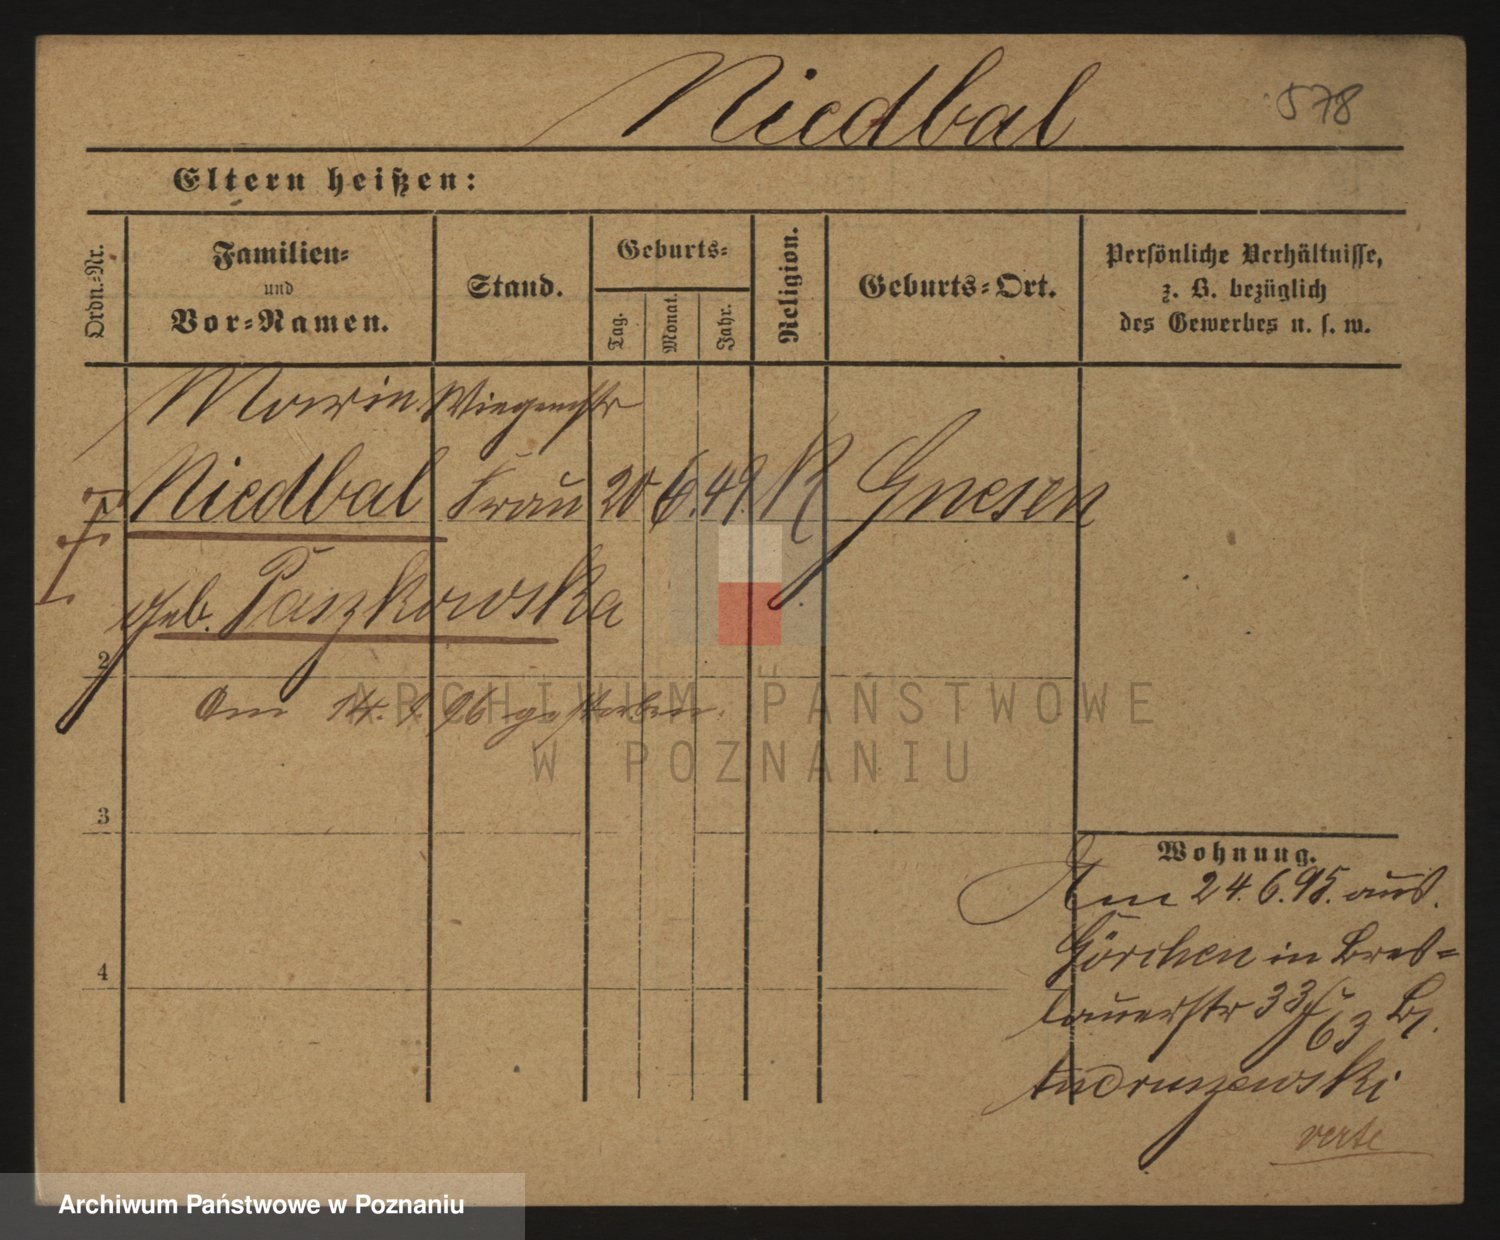 Niedbal
578
Eltern heißen:
Ordn.-Nr.
Familien-
und
Vor-Namen.
Stand.
Geburts-
Tag.
Monat.
Jahr.
Religion.
Geburts-Ort.
Persönliche Verhältnisse,
z. B. bezüglich
des Gewerbes u. s. w.
Marie
Niedbal Frau 20 6. 49. K Gnesen
geb. Paszkowska
2
Am 14. 96 gestorben.
3
4
Wohnung.
Am 24. 6. 95. aus
Görchen in Bres-
lauerstr 33/ 63 b/
Andruszewski
verte
ARCHIWUM PAŃSTWOWE
W POZNANIU
Archiwum Państwowe w Poznaniu